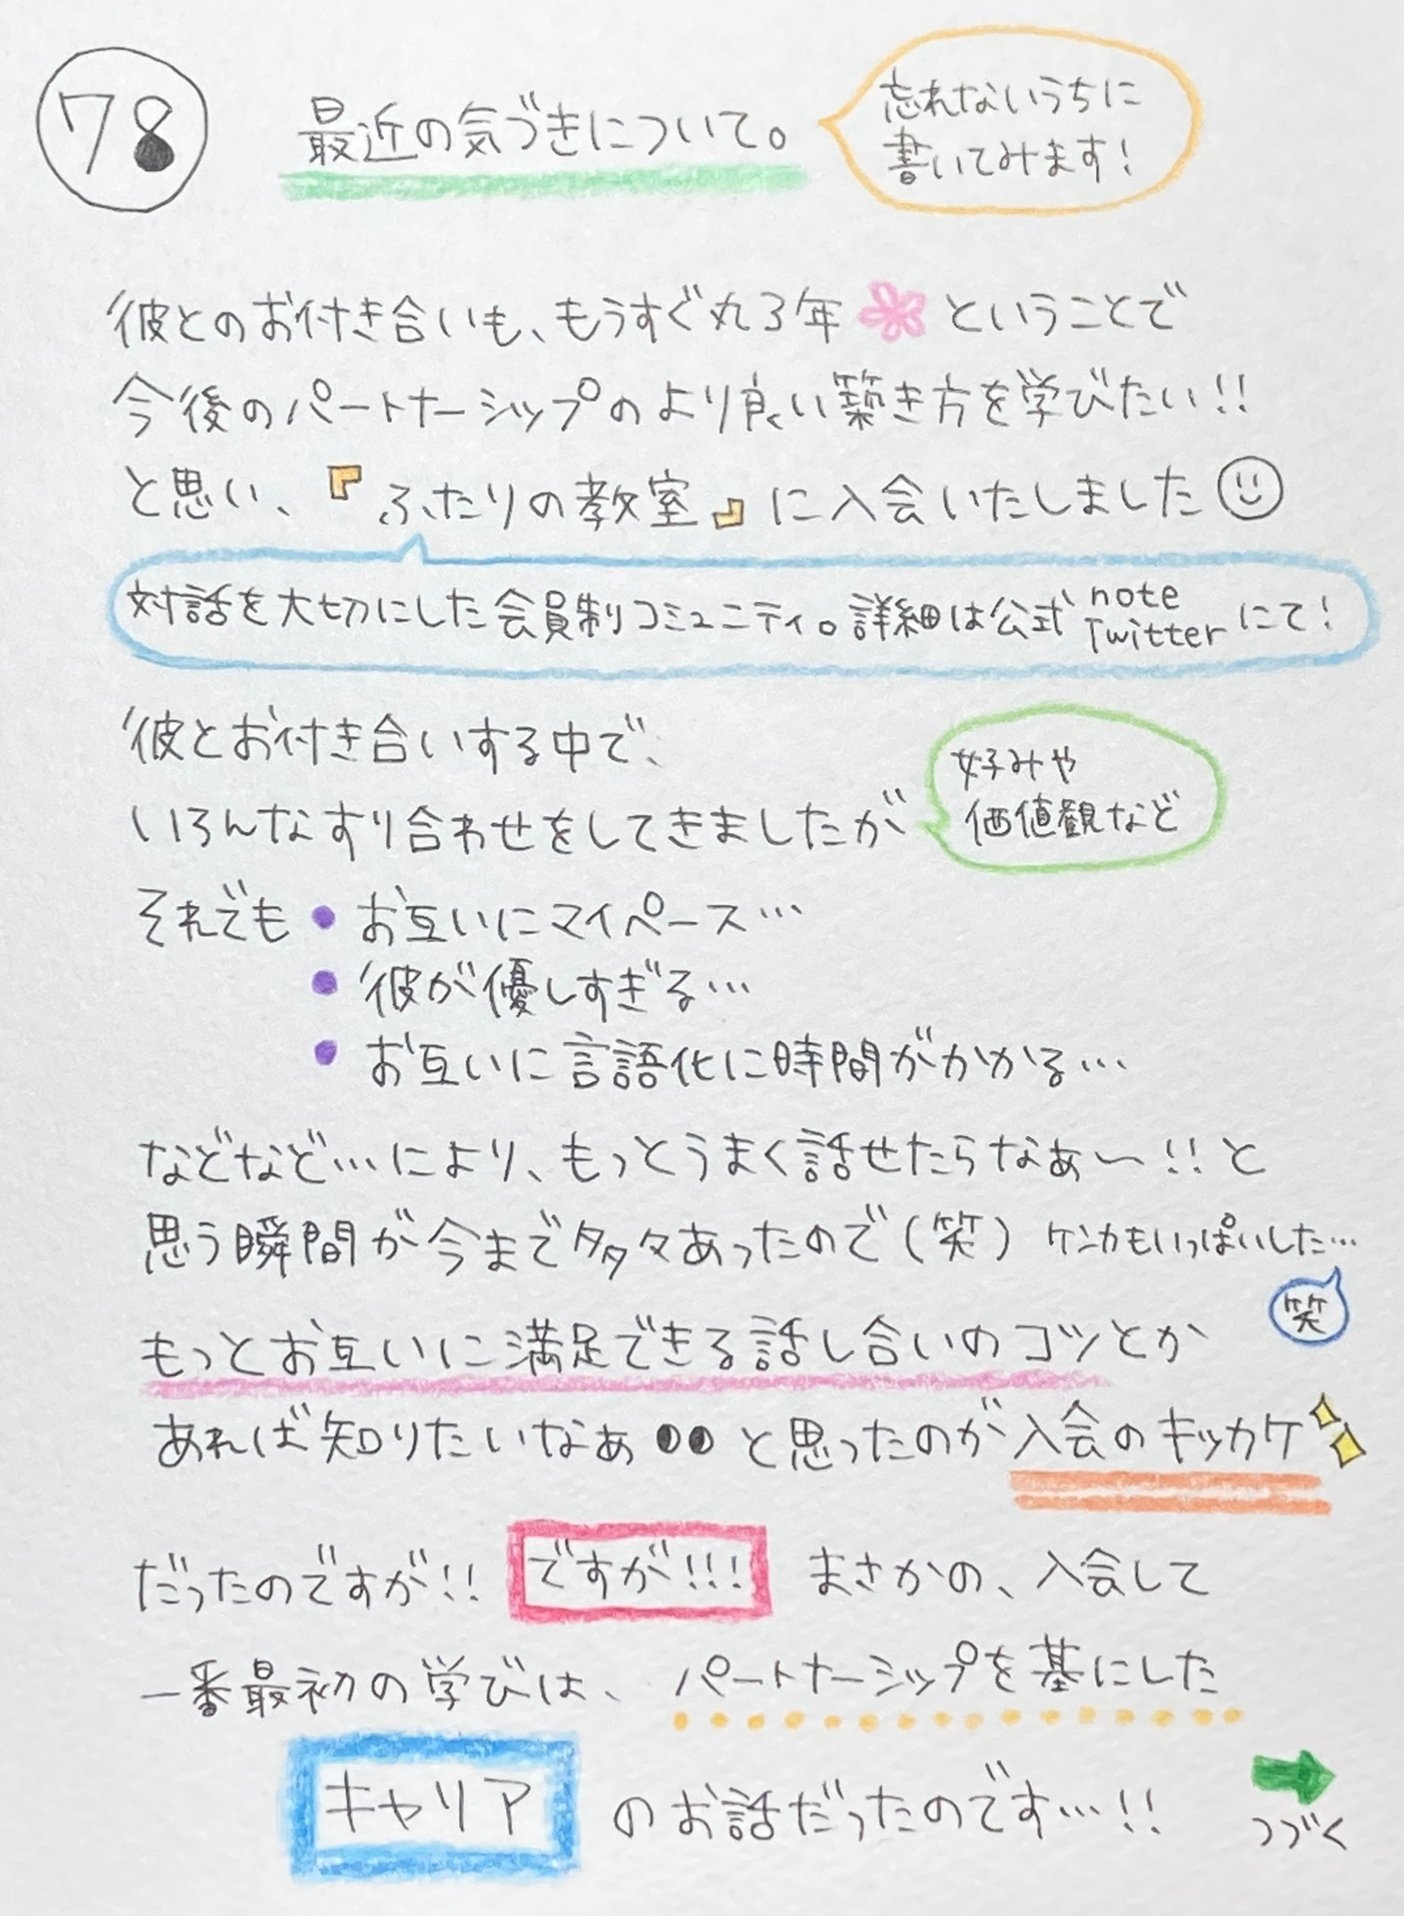 78
最近の気づきについて。
忘れないうちに
書いてみます!
彼とのお付き合いも、もうすぐ丸3年ということで
今後のパートナーシップのより良い築き方を学びたい!!
と思い、『ふたりの教室』に入会いたしました
対話を大切にした会員制コミュニティ。詳細は公式note Twitterにて!
彼とお付き合いする中で、
いろんなすり合わせをしてきましたが
好みや
価値観など
それでも・お互いにマイペース…
・彼が優しすぎる…
・お互いに言語化に時間がかかる…
などなど…により、もっとうまく話せたらなぁ〜!!と
思う瞬間が今まで多々あったので(笑)ケンカもいっぱいした…
笑
もっとお互いに満足できる話し合いのコツとか
あれば知りたいなぁと思ったのが入会のキッカケ
だったのですが!! ですが!!! まさかの、入会して
一番最初の学びは、パートナーシップを基にした
キャリアのお話だったのです…!!
つづく